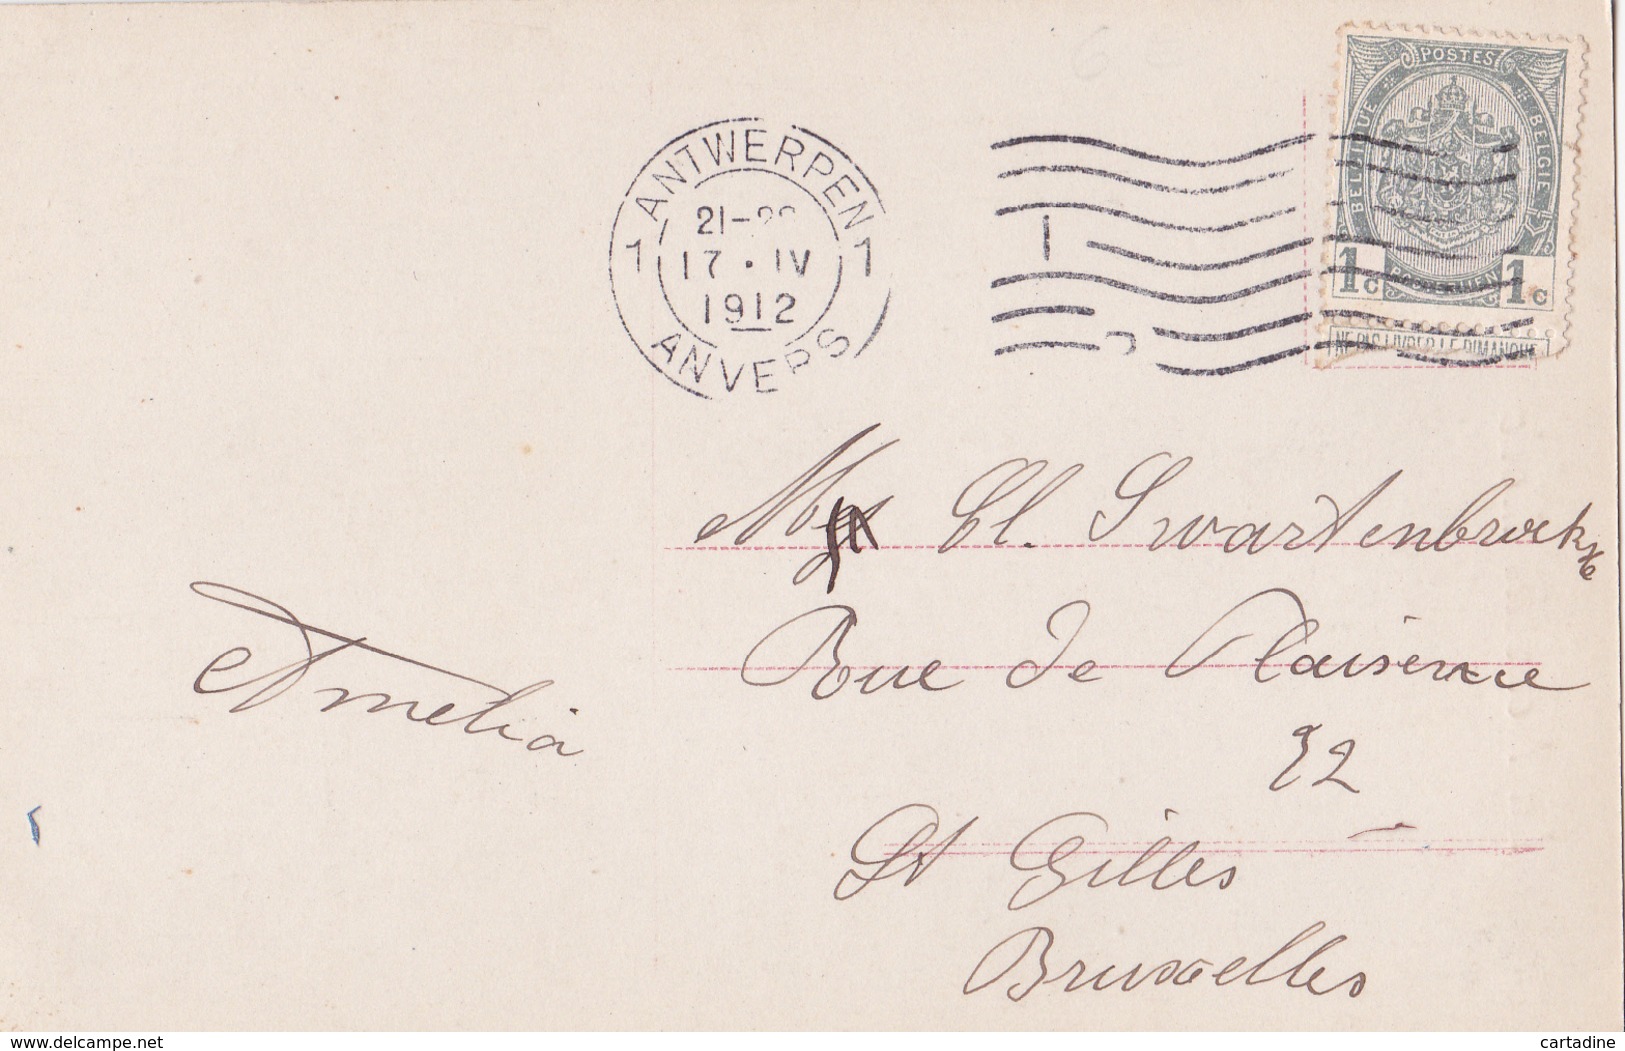 POSTES
BELGIQUE
BELGIË
1c
1c
NE PAS LIVRER LE DIMANCHE
ANTWERPEN
1
21-22
1
17 · IV
1912
ANVERS
Cl. Swartenbroekx
Rue de Plaisence
Amelia
32
St Gilles
Bruxelles
delcampe.net
cartadine